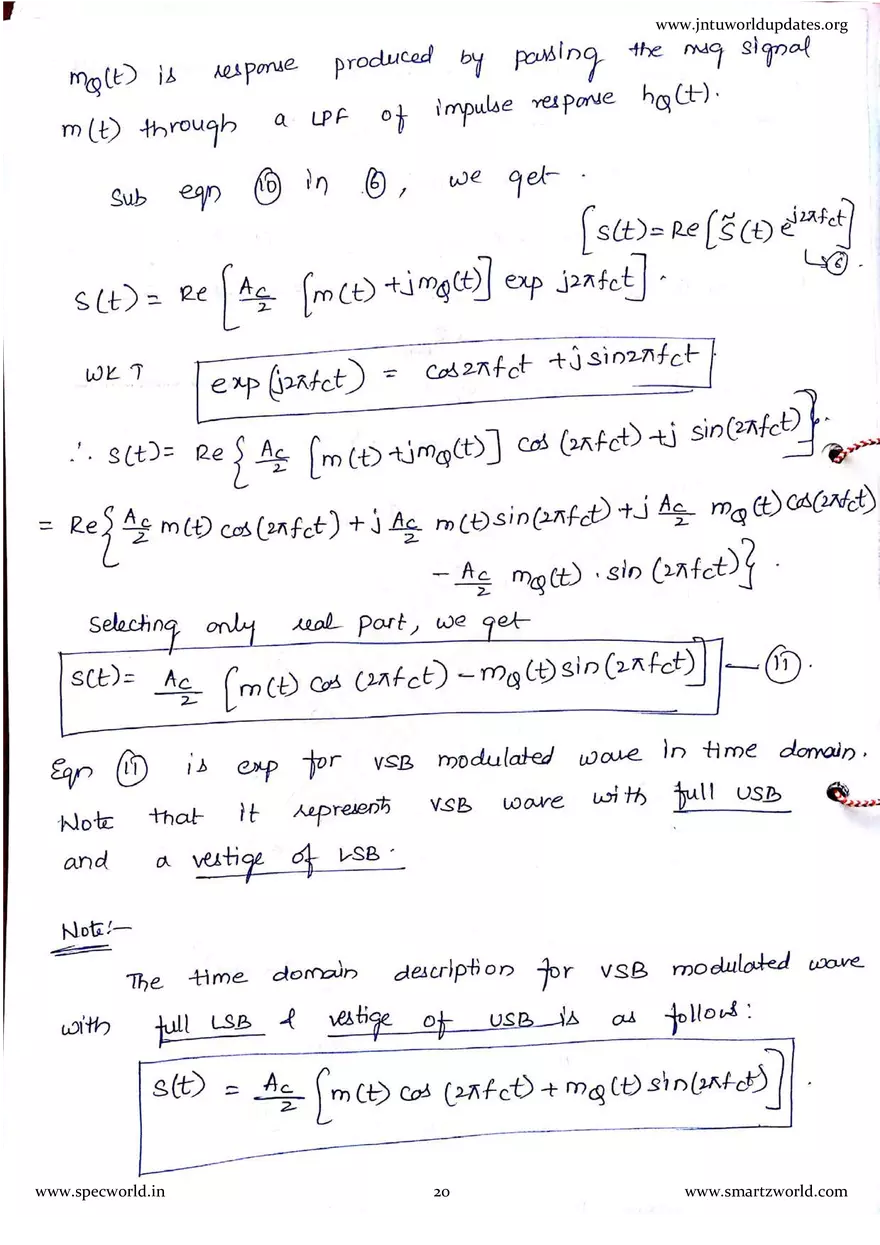 www.jntuworldupdates.org
mQ(t) is response produced by passing the msg signal
m(t) through a LPF of impulse response hQ(t).
Sub eqn ⑩ in ⑥, we get.
[s(t) = Re[s̃(t) e^{j2πfct}]
↳⑥.
S(t) = Re [Ac/2 [m(t) + jmQ(t)] exp j2πfct].
WKT exp(j2πfct) = cos2πfct + j sin2πfct.
∴ s(t) = Re { Ac/2 [m(t) + jmQ(t)] cos (2πfct) + j sin(2πfct)]}.
= Re{ Ac/2 m(t) cos(2πfct) + j Ac/2 m(t) sin(2πfct) + j Ac/2 mQ(t) cos(2πfct)
- Ac/2 mQ(t) . sin (2πfct)}.
Selecting only real part, we get
s(t) = Ac/2 [m(t) cos (2πfct) - mQ(t) sin(2πfct)] — ⑪.
Eqn ⑪ is exp for VSB modulated wave in time domain.
Note that it represents VSB wave with full USB
and a vestige of LSB.
Note:-
The time domain description for VSB modulated wave
with full LSB & vestige of USB is as follows:
s(t) = Ac/2 [m(t) cos (2πfct) + mQ(t) sin(2πfct)].
www.specworld.in 20 www.smartzworld.com